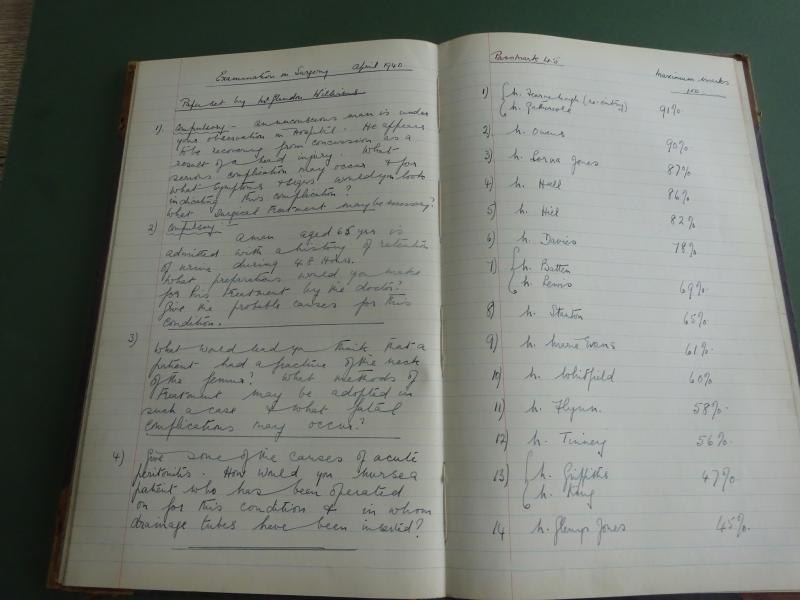 Examination in Surgery April 1940.
Paper set by Williams
1). Compulsory - An unconscious man is under
your observation in Hospital. He appears
to be recovering from concussion as a
result of a head injury. What
serious complication may occur & for
what symptoms & signs would you look
indicating this complication?
What Surgical Treatment may be necessary?
2) Compulsory -
A man aged 65 yrs is
admitted with a history of retention
of urine during 48 Hours.
What preparations would you make
for his treatment by the doctor?
Give the probable causes for this
condition.
3)
What would lead you think that a
patient had a fracture of the neck
of the femur? What methods of
treatment may be adopted in
such a case & what fatal
complications may occur?
4) Give some of the causes of acute
peritonitis. How would you nurse a
patient who has been operated
on for this condition & in whom
drainage tubes have been inserted?
Passmark
maximum marks
100.
1) N. (re-entry)
N. 91%
2) N. Owens 90%
3) N. Lorna Jones 87%
4) N. Hall 86%
5) N. Hill 82%
6) N. Davies 78%
7) N. Batten
N. Lewis 69%
8) N. Stanton 65%
9) N. Evans 61%
10) N. Whitfield 60%
11) N. Flynn. 58%
12) N. Tinney 56%
13) N. Griffiths 47%
N. King
14 N. Glenys Jones 45%